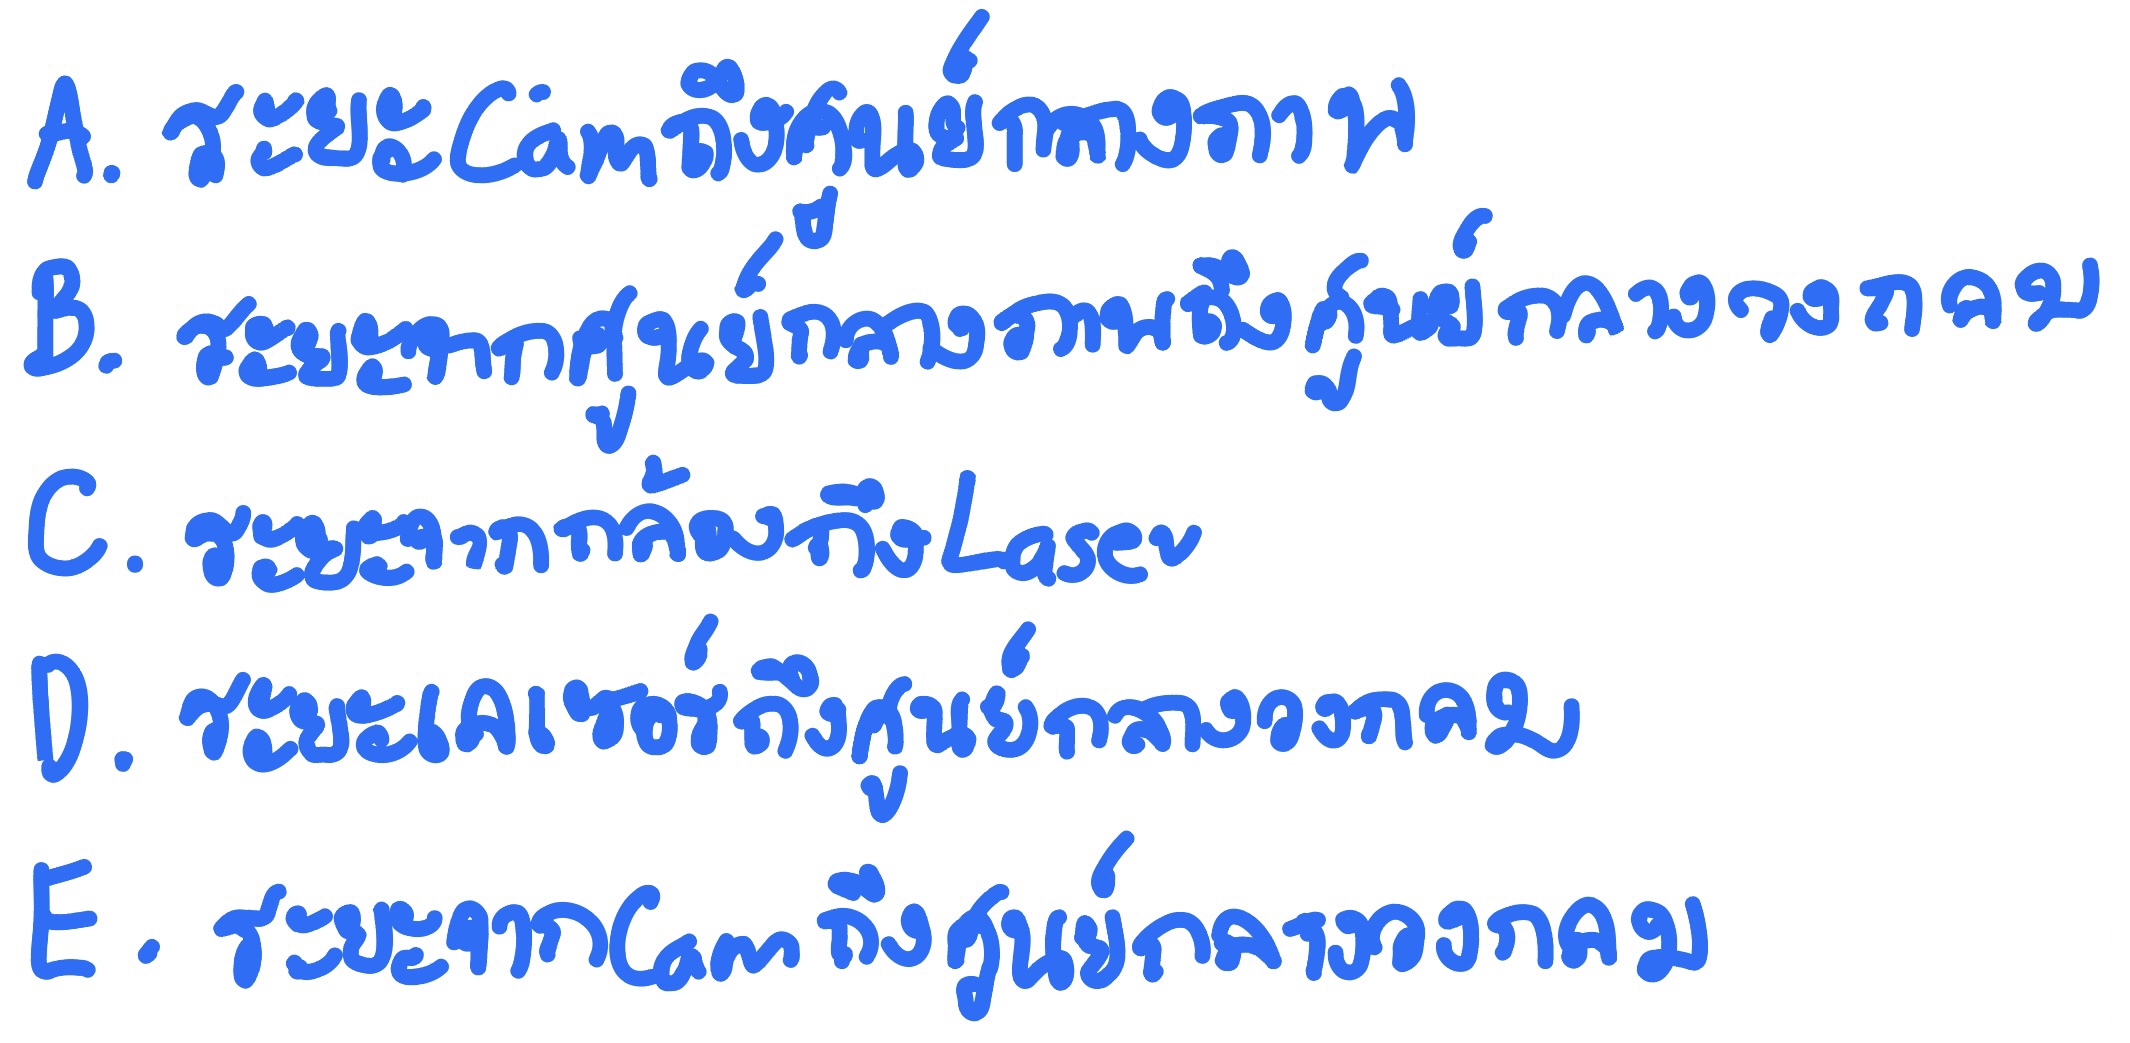 A. ระยะCamถึงศูนย์กลางภาพ
B. ระยะจากศูนย์กลางภาพถึงศูนย์กลางวงกลม
C. ระยะจากกล้องถึงLaser
D. ระยะเลเซอร์ถึงศูนย์กลางวงกลม
E. ระยะจากCamถึงศูนย์กลางวงกลม